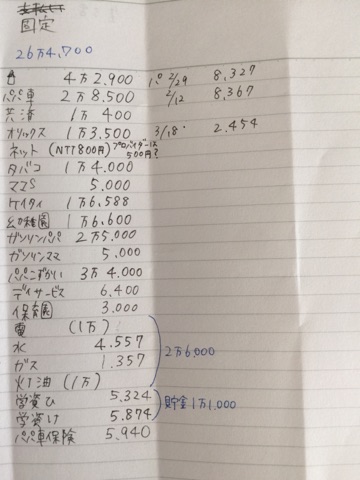 固定
26万4,700
4万2,900 パ 2/29 8,327
パパ車 2万8,500 2/12 8,367
共済 1万 400
オリックス 1万3,500 3/18. 2.454
ネット (NTT800円) プロバイダーは500円?
タバコ 1万4.000
ママS 5.000
ケイタイ 1万6.588
幼稚園 1万6.600
ガソリンパパ 2万5.000
ガソリンママ 5.000
パパこずかい 3万4.000
デイサービス 6.400
保育園 3.000
電 (1万)
水 4.557 2万6,000
ガス 1.357
灯油 (1万)
学資ひ 5.324 貯金1万1.000
学資け 5.874
パパ車保険 5.940